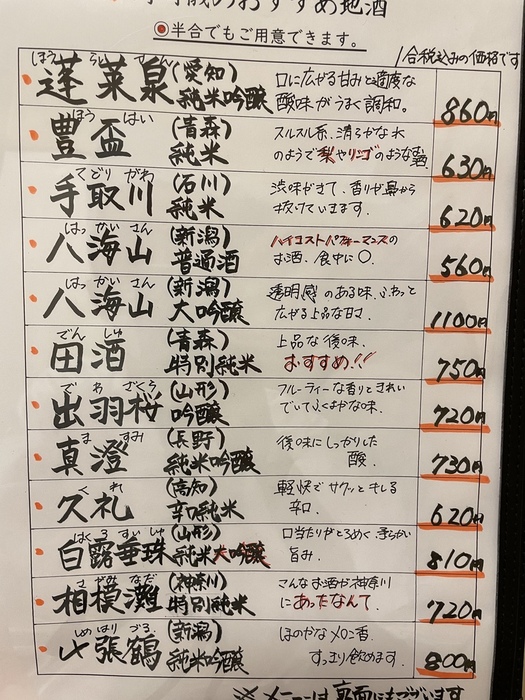 のおすすめ地酒
◉半合でもご用意できます。
合税込みの価格です
ほう らい せん
蓬莱泉 (愛知) 純米吟醸
口に広がる甘みと適度な
酸味がうまく調和。
860円
ほう はい
豊盃 (青森) 純米
スルスル系、清らかな水
のようで梨やリンゴのようなお酒
630円
てどり がわ
手取川 (石川) 純米
渋味がきて、香りが鼻から
抜けていきます。
620円
はっ かい さん
八海山 (新潟) 普通酒
ハイコストパフォーマンスの
お酒。食中に〇。
560円
はっ かい さん
八海山 (新潟) 大吟醸
透明感のある味、ふわっと
広がる上品な甘さ
1100円
でん しゅ
田酒 (青森) 特別純米
上品な後味。
おすすめ!!
750円
で わ ざくら
出羽桜 (山形) 吟醸
フルーティーな香りときれい
でいてふくよかな味。
720円
ま すみ
真澄 (長野) 純米吟醸
後味にしっかりした
酸.
730円
く れ
久礼 (高知) 辛口純米
軽快でサクッとキレる
辛口.
620円
はくろ すいしゅ
白露垂珠 (山形) 純米大吟醸
口当たりがとろめく、柔らかい
旨み.
810円
さがみ なだ
相模灘 (神奈川) 特別純米
こんなお酒が神奈川
にあったなんて.
720円
しめ はり づる
〆張鶴 (新潟) 純米吟醸
ほのかなメロン香.
すっきり飲めます.
800円
※メニューは裏面にもございます